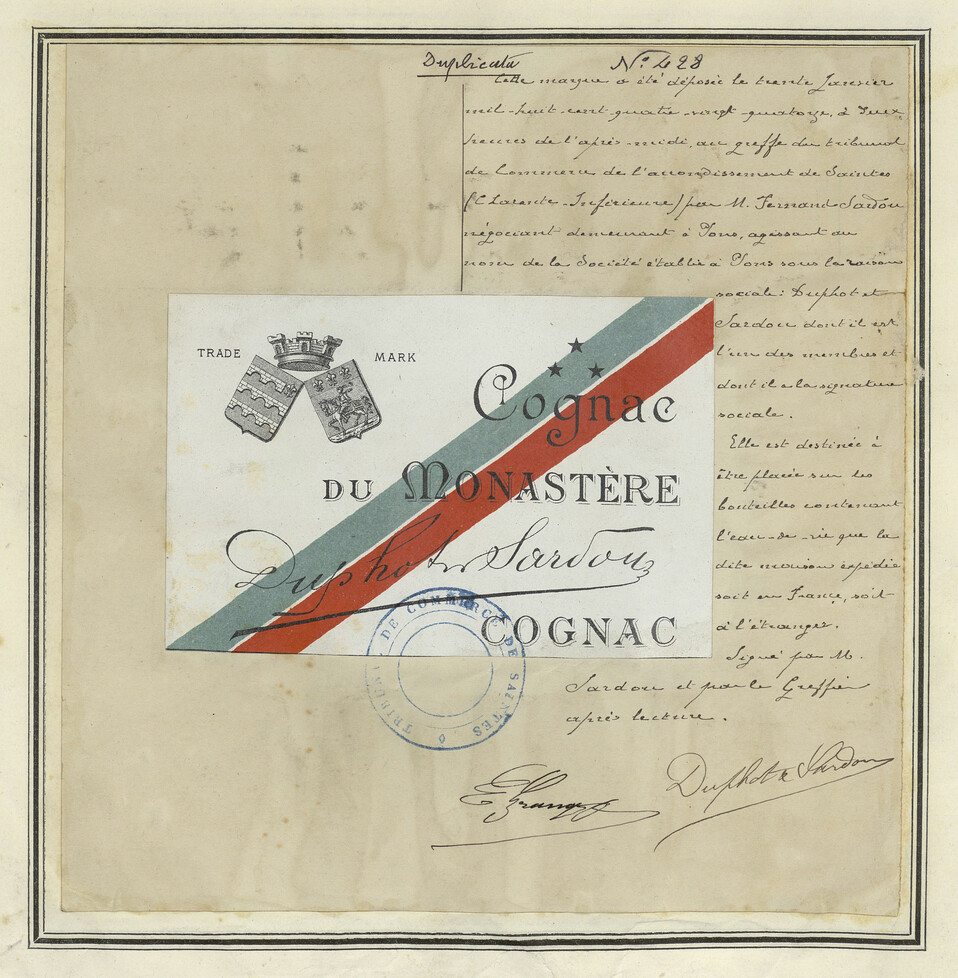 Duplicata
N° 428
Cette marque a été déposée le trente Janvier
mil-huit-cent-quatre-vingt-quatorze, à deux
heures de l'après-midi, au greffe du tribunal
de Commerce de l'arrondissement de Saintes
(Charente-Inférieure) par M. Fernand Sardou
négociant demeurant à Pons, agissant au
nom de la Société établie à Pons sous la raison
sociale: Duphot et
Sardou dont il est
l'un des membres et
dont il a la signature
sociale.
Elle est destinée à
être placée sur les
bouteilles contenant
l'eau-de-vie que la
dite maison expédie
soit en France, soit
à l'étranger.
Signé par M.
Sardou et par le Greffier
après lecture.
TRADE MARK
Cognac
DU MONASTÈRE
Duphot & Sardou
COGNAC
TRIBUNAL DE COMMERCE DE SAINTES
Duphot & Sardou